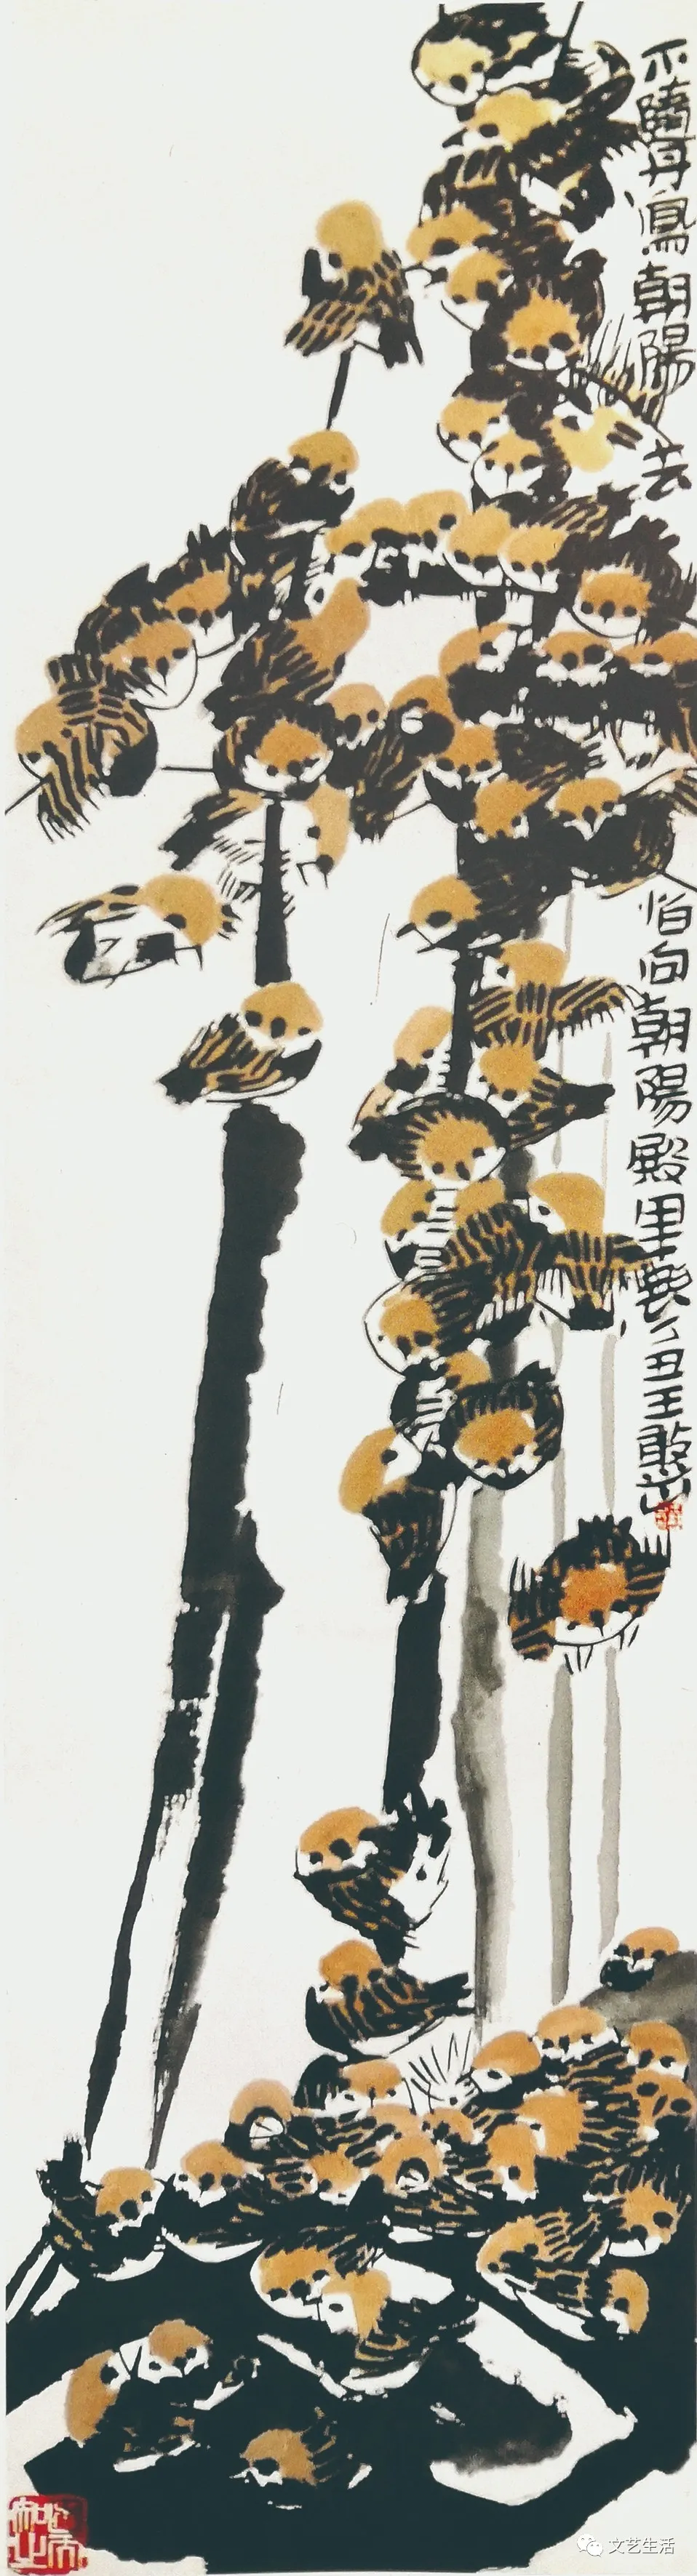 不隨丹鳳朝陽去
怕向朝陽殿里丁丑王憨山
文艺生活